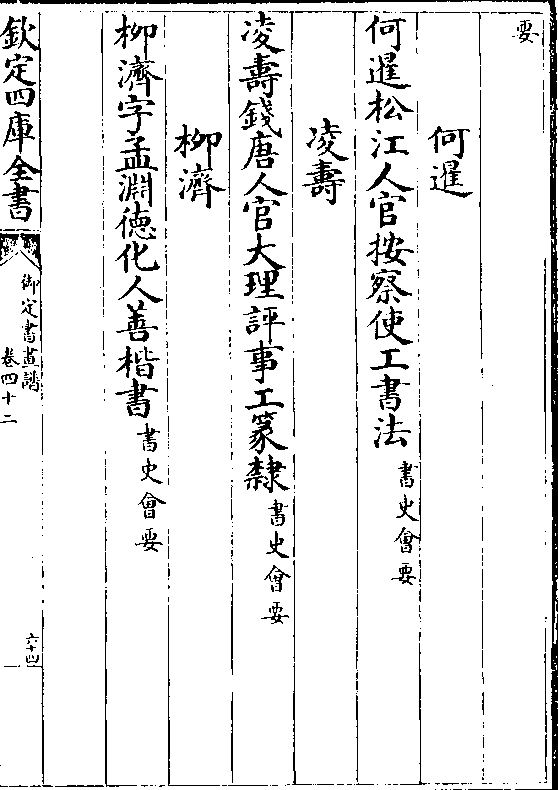 要
何暹
何暹松江人官按察使工書法書史會要
凌壽
凌壽錢唐人官大理評事工篆隸書史會要
柳濟
柳濟字孟淵德化人善楷書書史會要
欽定四庫全書
御定書畫譜
卷四十二
六十四